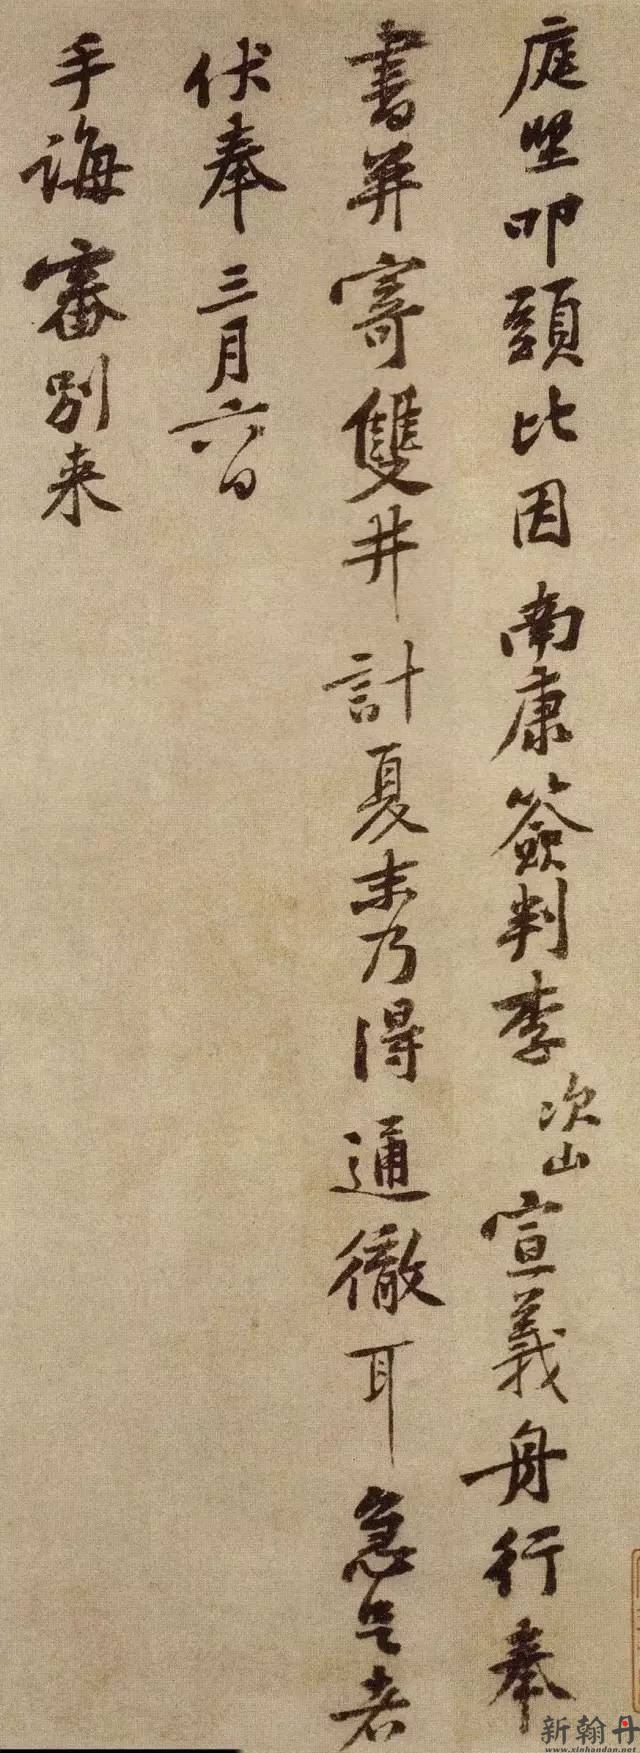 庭堅叩頭比因南康簽判李次山宣義舟行奉
書并寄雙井計夏末乃得通徹耳急足者
伏奉三月六日
手誨審別來
新翰丹
www.xinhandan.net